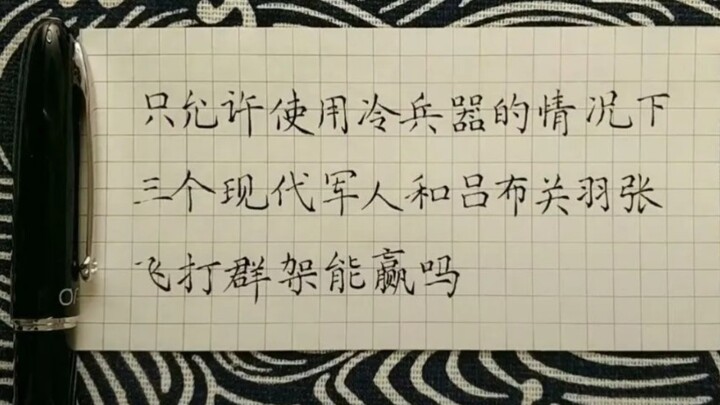 只允许使用冷兵器的情况下
三个现代军人和吕布关羽张
飞打群架能赢吗